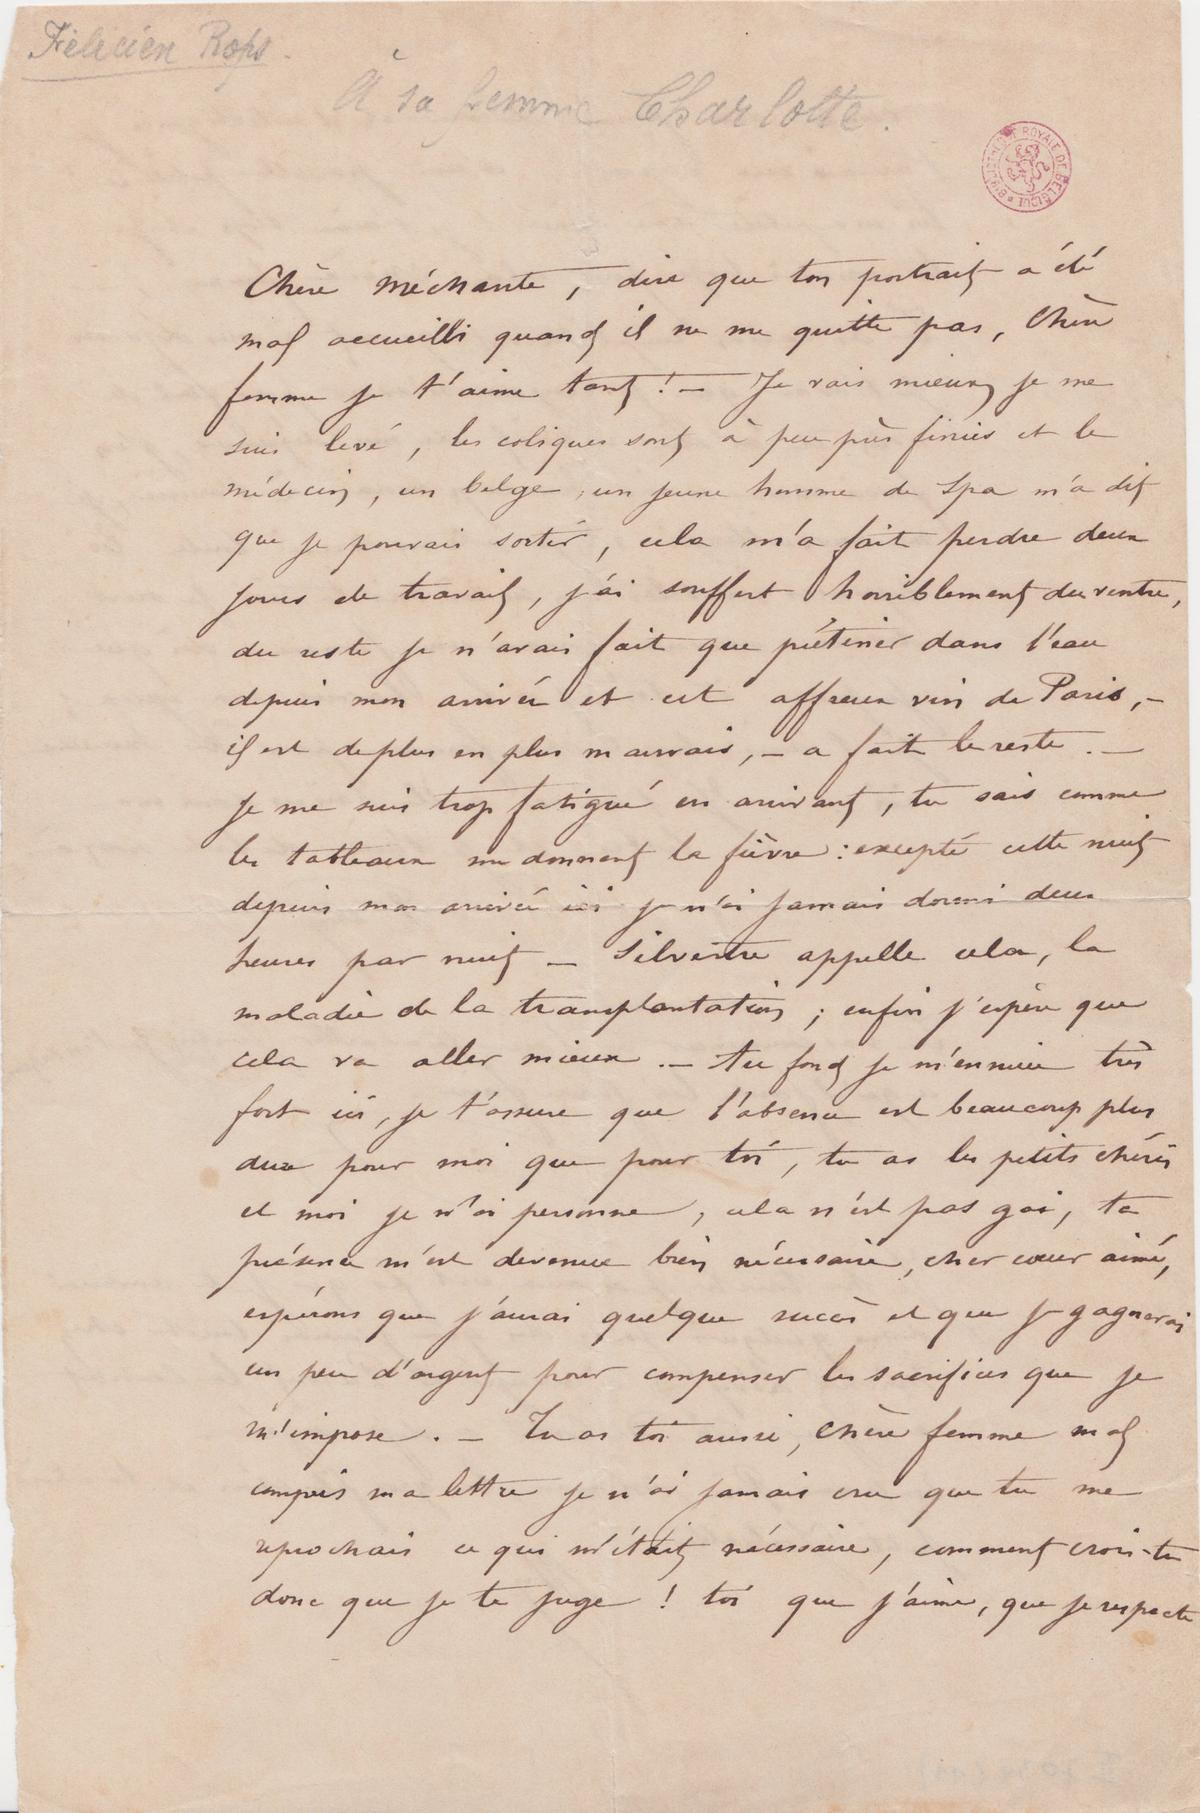 Félicien Rops.
À sa femme Charlotte.
BIBLIOTHEQUE ROYALE DE BELGIQUE
Chère méchante, dire que ton portrait a été
mal accueilli quand il ne me quitte pas, Chère
femme je t'aime tant ! — Je vais mieux je me
suis levé, les coliques sont à peu près finies et le
médecin, un belge, un jeune homme de Spa m'a dit
que je pouvais sortir, cela m'a fait perdre deux
jours de travail, j'ai souffert horriblement du ventre,
du reste je n'avais fait que piétiner dans l'eau
depuis mon arrivée et cet affreux vin de Paris, –
il est de plus en plus mauvais, – a fait le reste. —
Je me suis trop fatigué en arrivant, tu sais comme
les tableaux me donnent la fièvre : excepté cette nuit
depuis mon arrivée ici je n'ai jamais dormi deux
heures par nuit — Silvestre appelle cela, la
maladie de la transplantation ; enfin j'espère que
cela va aller mieux. — Au fond je m'ennuie très
fort ici, je t'assure que l'absence est beaucoup plus
dure pour moi que pour toi, tu as les petits chéris
et moi je n'ai personne, cela n'est pas gai, ta
présence m'est devenue bien nécessaire, cher cœur aimé,
espérons que j'aurai quelque succès et que je gagnerai
un peu d'argent pour compenser les sacrifices que je
m'impose. — Tu as toi aussi, Chère femme mal
compris ma lettre je n'ai jamais cru que tu me
reprochais ce qui m'était nécessaire, comment crois-tu
donc que je te juge ! toi que j'aime, que je respecte